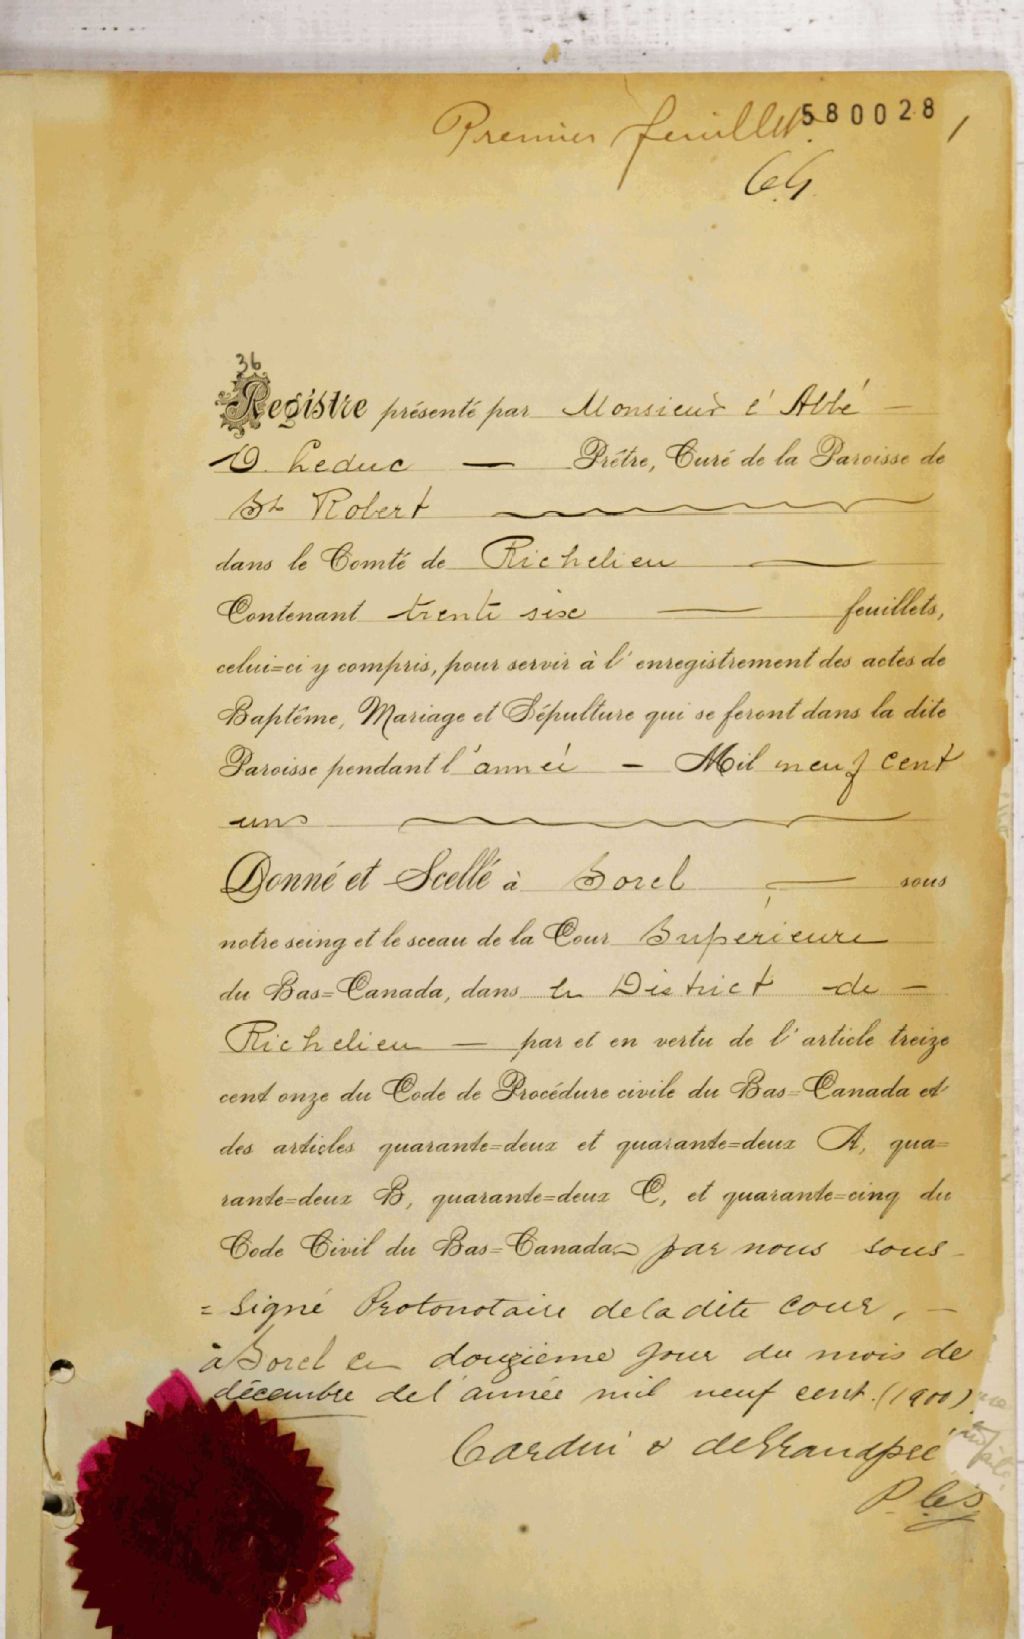 Premier feuillet. 580028 1
C.G.
36
Registre présenté par Monsieur l'Abbé
O. Leduc — Prêtre, Curé de la Paroisse de
St Robert
dans le Comté de Richelieu
Contenant trente six — feuillets,
celui=ci y compris, pour servir à l'enregistrement des actes de
Baptême, Mariage et Sépulture qui se feront dans la dite
Paroisse pendant l'année — Mil neuf cent
un
Donné et Scellé à Sorel — sous
notre seing et le sceau de la Cour Supérieure
du Bas=Canada, dans le District de —
Richelieu — par et en vertu de l'article treize
cent onze du Code de Procédure civile du Bas=Canada et
des articles quarante=deux et quarante=deux A, qua=
rante=deux B, quarante=deux C, et quarante=cinq du
Code Civil du Bas=Canada par nous sous-
= signé Protonotaire de la dite cour, —
à Sorel ce douzieme jour du mois de
décembre de l'année mil neuf cent. (1900)
Cardin & deGrandpré
P.C.S